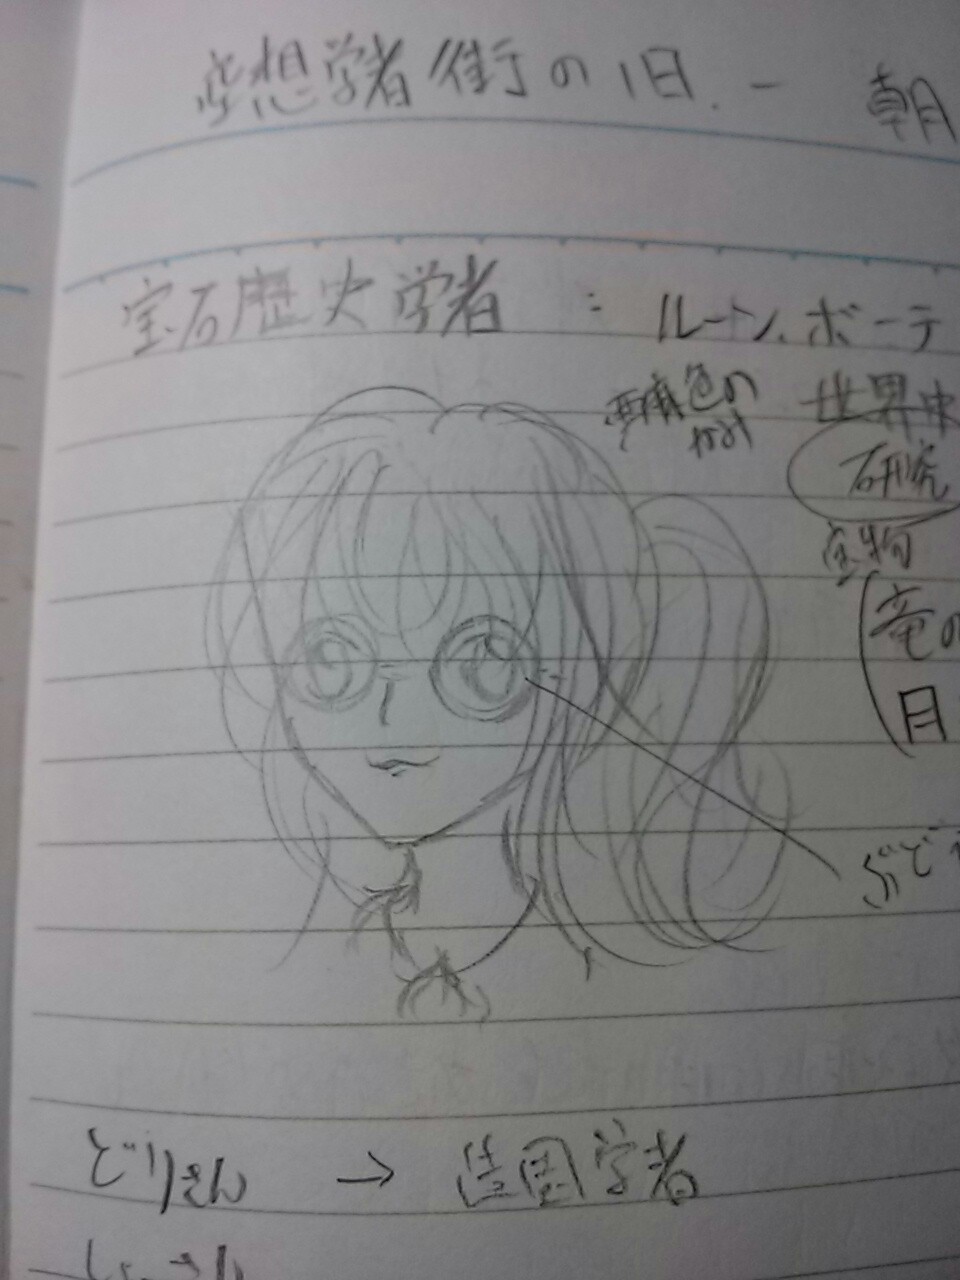 空想学者街の1日.ー 朝
宝石歴史学者 : ルートン.ボーテ
亜麻色の
かみ
世界史
研究
宝物
(竜の
月
ぶど
どりさん → 造園学者